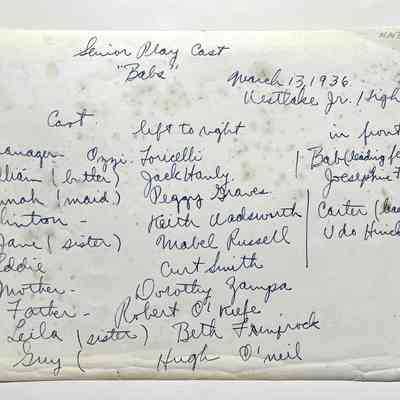 Senior Play Cast
"Babs"
March 13, 1936
Westlake Jr. High
Cast left to right in front
anager - Ozzi. Toricelli Bab (leading fe
illiam (butler) Jack Hanly Josephine
nnah (maid) Peggy Graves
linton - Keith Wadsworth Carter (lea
Jane (sister) Mabel Russell Udo Hinck
Eddie Curt Smith
Mother - Dorothy Zampa
Father - Robert O'Keefe
Leila (sister) Beth
Guy ( Hugh O'neil